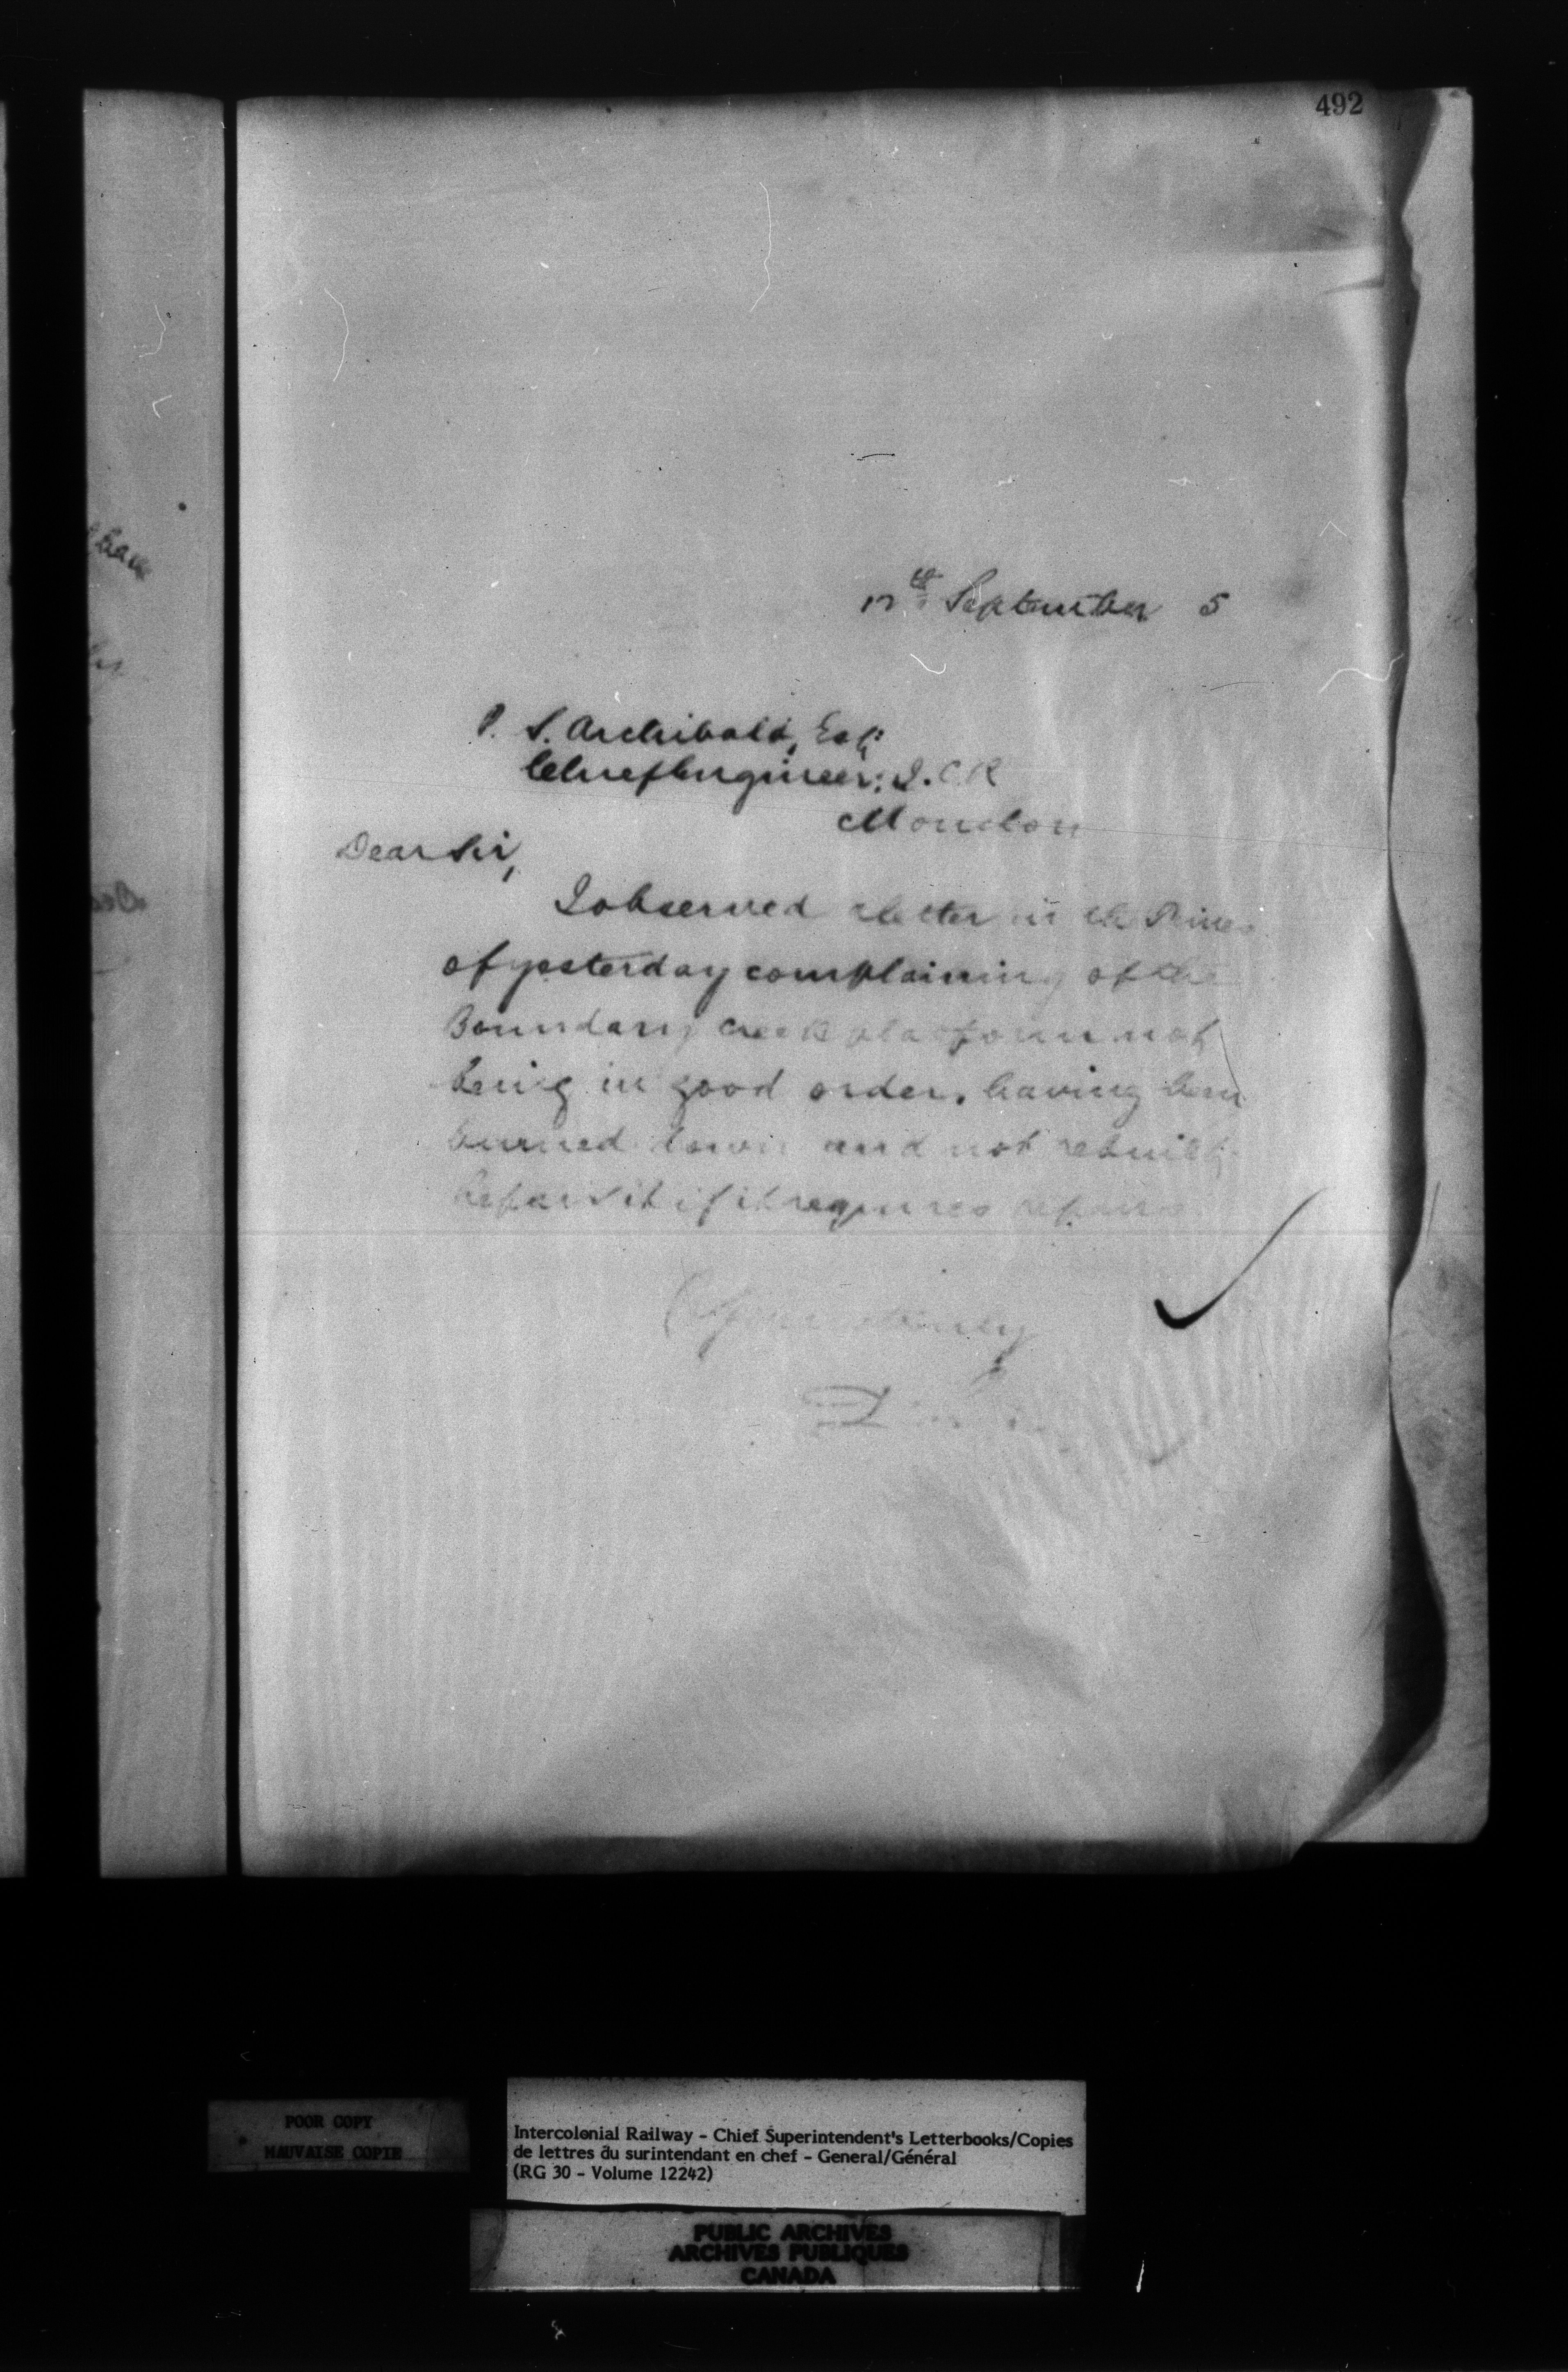 492
17th September 5
P. S. Archibald, Esq:
Chief Engineer: I.C.R
Moncton
Dear Sir,
I observed a letter in the Times
of yesterday complaining of the
Boundary Creek platform not
being in good order. having been
burned down and not rebuilt.
Repair it if it requires repairs
Yours truly
POOR COPY
MAUVAISE COPIE
Intercolonial Railway - Chief Superintendent's Letterbooks/Copies
de lettres du surintendant en chef - General/Général
(RG 30 - Volume 12242)
PUBLIC ARCHIVES
ARCHIVES PUBLIQUES
CANADA